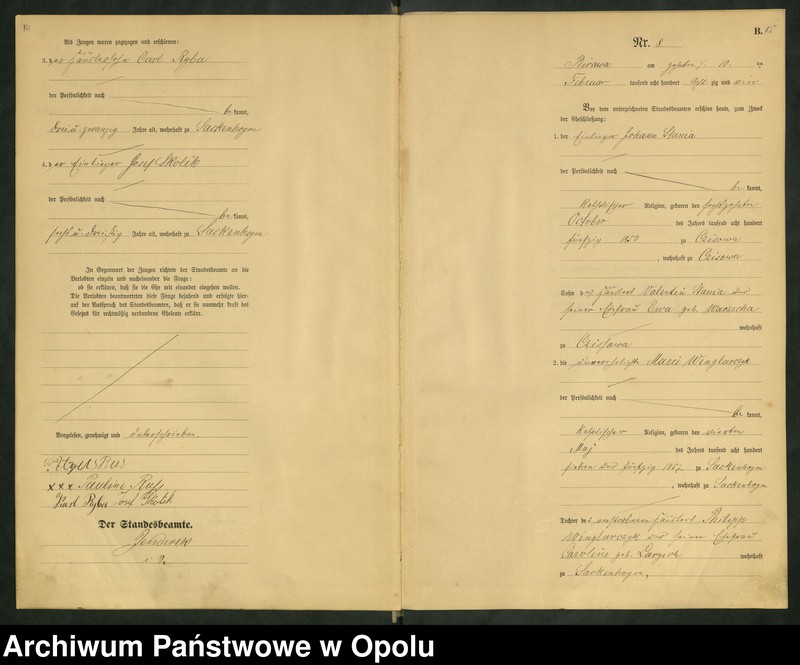 Als Zeugen waren zugezogen und erschienen:
3. der Häuslersohn Carl Ryba
der Persönlichkeit nach
be kannt,
drei u. zwanzig Jahre alt, wohnhaft zu Sackenhoym
4. der Einlieger Josef Skolik
der Persönlichkeit nach
be kannt,
sechs u. dreißig Jahre alt, wohnhaft zu Sackenhoym
In Gegenwart der Zeugen richtete der Standesbeamte an die
Verlobten einzeln und nacheinander die Frage:
ob sie erklären, daß sie die Ehe mit einander eingehen wollen.
Die Verlobten beantworteten diese Frage bejahend und erfolgte hier-
auf der Ausspruch des Standesbeamten, daß er sie nunmehr kraft des
Gesetzes für rechtmäßig verbundene Eheleute erkläre.
Vorgelesen, genehmigt und unterschrieben.
xxx Pauline Russ
Karl Ryba Josef Skolik
Der Standesbeamte.
B. 15
Nr. 8.
Birawa am zehnten / 10. ten
Februar tausend acht hundert acht zig und vier
Vor dem unterzeichneten Standesbeamten erschien heute, zum Zweck
der Eheschließung:
1. der Einlieger Johann Stania
der Persönlichkeit nach
be kannt,
katholischer Religion, geboren den sechszehnten
October des Jahres tausend acht hundert
fünfzig 1850 zu Czissowa
, wohnhaft zu Czissowa
Sohn des Häusler Valentin Stania und
seiner Ehefrau Ewa geb. Warzecha
wohnhaft
zu Czissowa
2. die unverehelichte Marie Wenglarczyk
der Persönlichkeit nach
be kannt,
katholischer Religion, geboren den vierten
Maj des Jahres tausend acht hundert
sieben und fünfzig 1857 zu Sackenhoym
, wohnhaft zu Sackenhoym
Tochter des verstorbenen Häusler Philipp
Wenglarczyk und seiner Ehefrau
Caroline geb. wohnhaft
zu Sackenhoym,
Archiwum Państwowe w Opolu